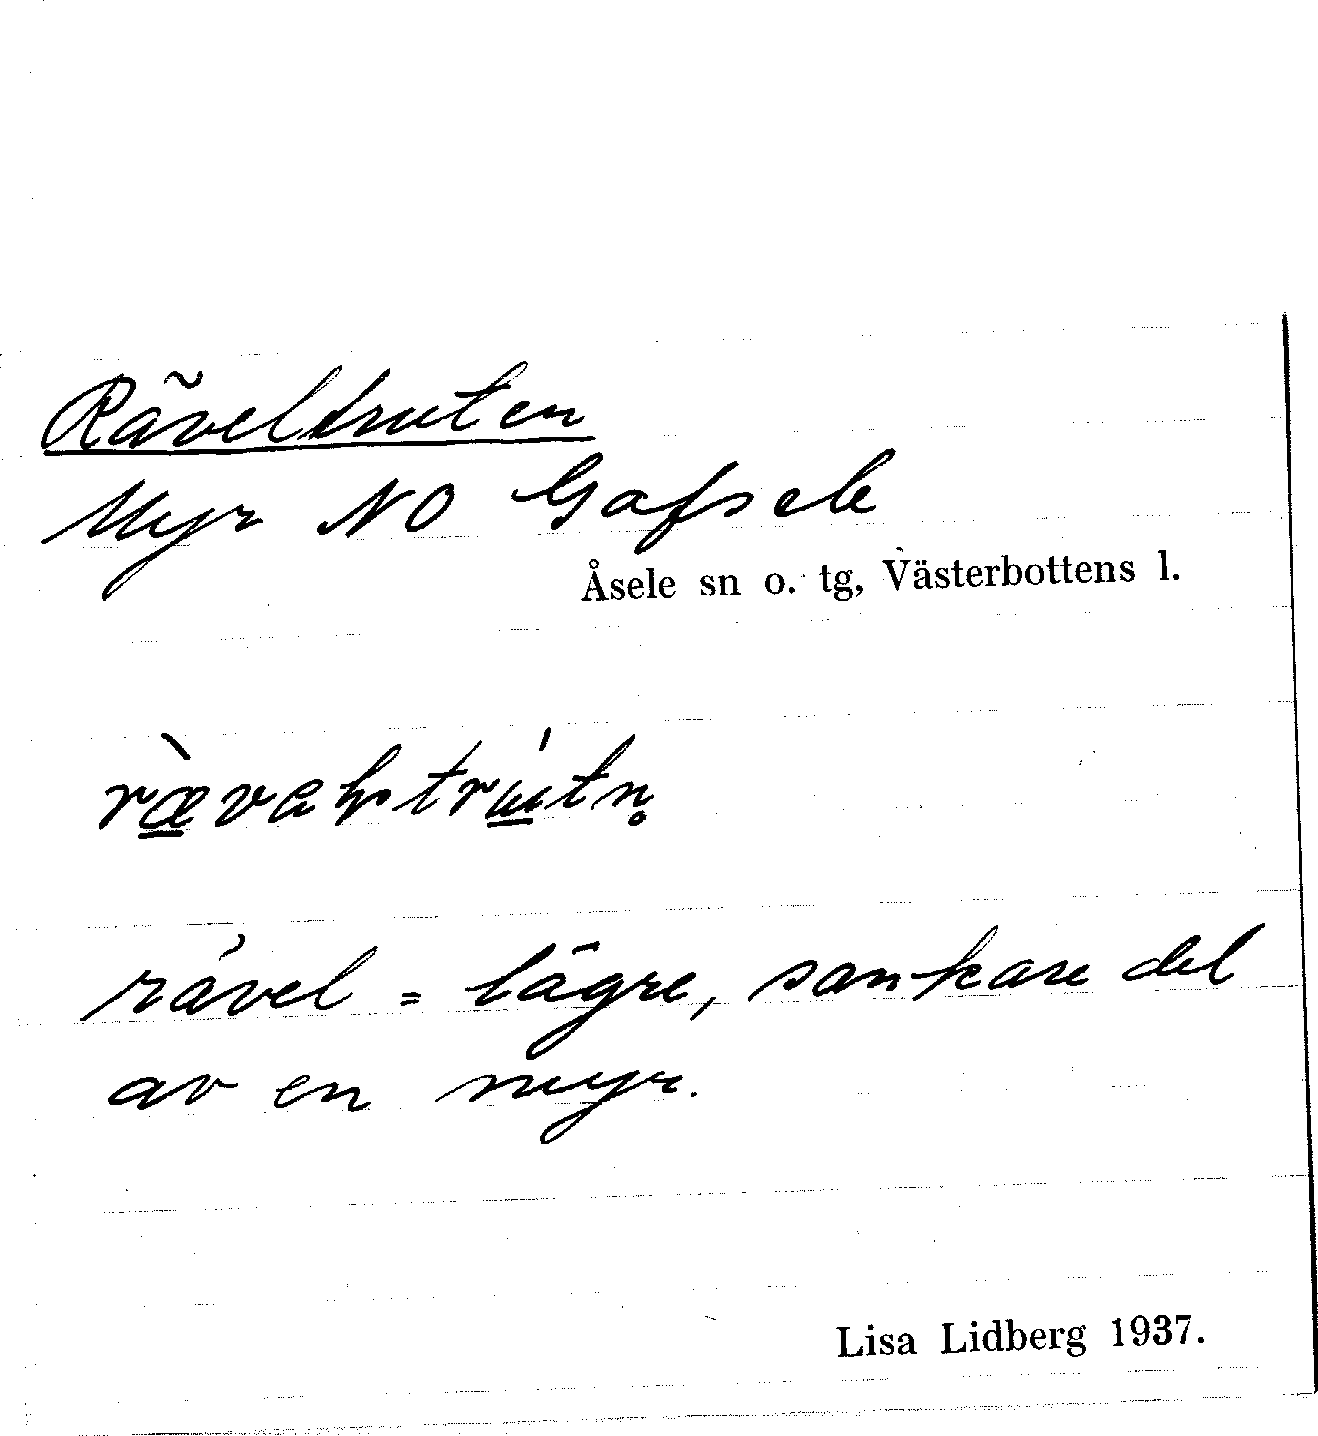 Räveltruten
Myr NO Gafsele
Åsele sn o. tg, Västerbottens l.
rävel = lägre, sankare del
av en myr.
Lisa Lidberg 1937.